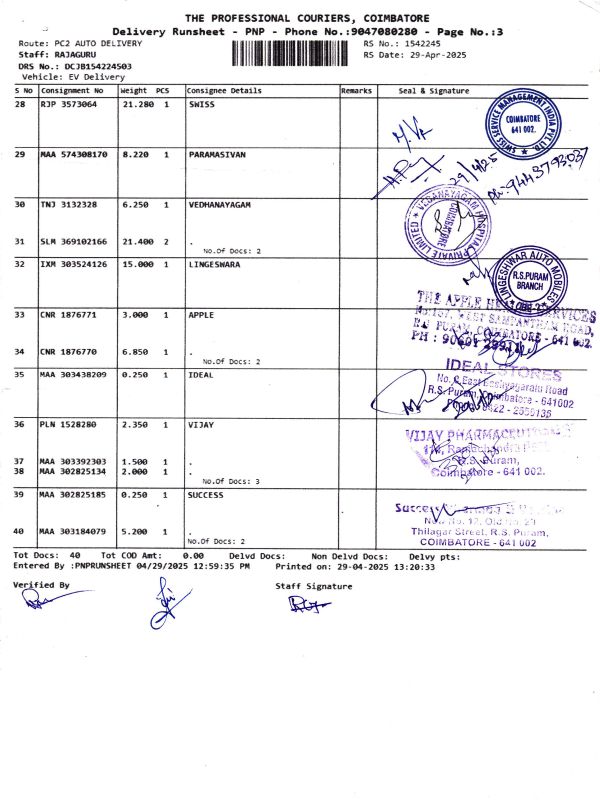 THE PROFESSIONAL COURIERS, COIMBATORE
Delivery Runsheet - PNP - Phone No.:9047080280 - Page No.:3
Route: PC2 AUTO DELIVERY
RS No.: 1542245
Staff: RAJAGURU
RS Date: 29-Apr-2025
DRS No.: DCJB154224503
Vehicle: EV Delivery
S No Consignment No Weight PCS Consignee Details Remarks Seal & Signature
28 RJP 3573064 21.280 1 SWISS
SWISS SERVICE MANAGEMENT INDIA PVT. LTD.
COIMBATORE
641 002.
29 MAA 574308170 8.220 1 PARAMASIVAN
29/4/25
Ph: 9443793037
30 TNJ 3132328 6.250 1 VEDHANAYAGAM
VEDANAYAGAM HOSPITAL PRIVATE LIMITED
COIMBATORE
31 SLM 369102166 21.400 2 .
No.Of Docs: 2
32 IXM 303524126 15.000 1 LINGESWARA
LINGESHWAR AUTO MOBILES
R.S.PURAM
BRANCH
33 CNR 1876771 3.000 1 APPLE
THE APPLE SERVICES
WEST SAMPANTHAM ROAD,
PURAM, COIMBATORE - 641 002.
PH :
34 CNR 1876770 6.850 1 .
No.Of Docs: 2
35 MAA 303438209 0.250 1 IDEAL
IDEAL STORES
No. East Road
R.S. Puram, Coimbatore - 641002
36 PLN 1528280 2.350 1 VIJAY
VIJAY
R.S. Puram,
Coimbatore - 641 002.
37 MAA 303392303 1.500 1 .
38 MAA 302825134 2.000 1 .
No.Of Docs: 3
39 MAA 302825185 0.250 1 SUCCESS
New No. 12, Old No. 
Thilagar Street, R.S. Puram,
COIMBATORE - 641 002
40 MAA 303184079 5.200 1 .
No.Of Docs: 2
Tot Docs: 40 Tot COD Amt: 0.00 Delvd Docs: Non Delvd Docs: Delvy pts:
Entered By :PNPRUNSHEET 04/29/2025 12:59:35 PM Printed on: 29-04-2025 13:20:33
Verified By
Staff Signature